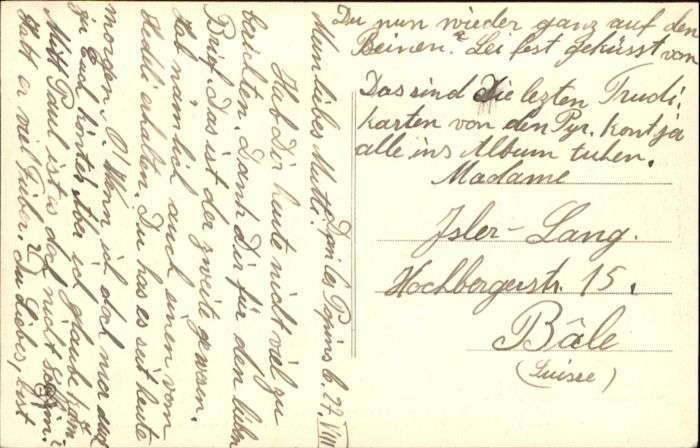 les Pepins b. 27. VIII
Mein liebes Mutti!
Hab Dir heute nicht viel zu
berichten. Dank Dir für den lieben
Brief. Das ist der zweite gewesn.
Hab nämlich auch einen von
Heddi erhalten. Du has es seit heute
morgen. O! Wenn ich doch nur
zu Euch könnte. Aber ich glaube,
Mitt Paul ist es doch nicht schlimm.
Hatt er viel Fieber? Du Liebes, bist
Du nun wieder ganz auf den
Beinen? Sei fest geküsst von
Trudi.
Das sind die lezten
karten von den Pyr. Kont ja
alle ins Album tuhen.
Madame
Isler-Lang.
Hochbergerstr. 15.
Bâle
(Suisse)